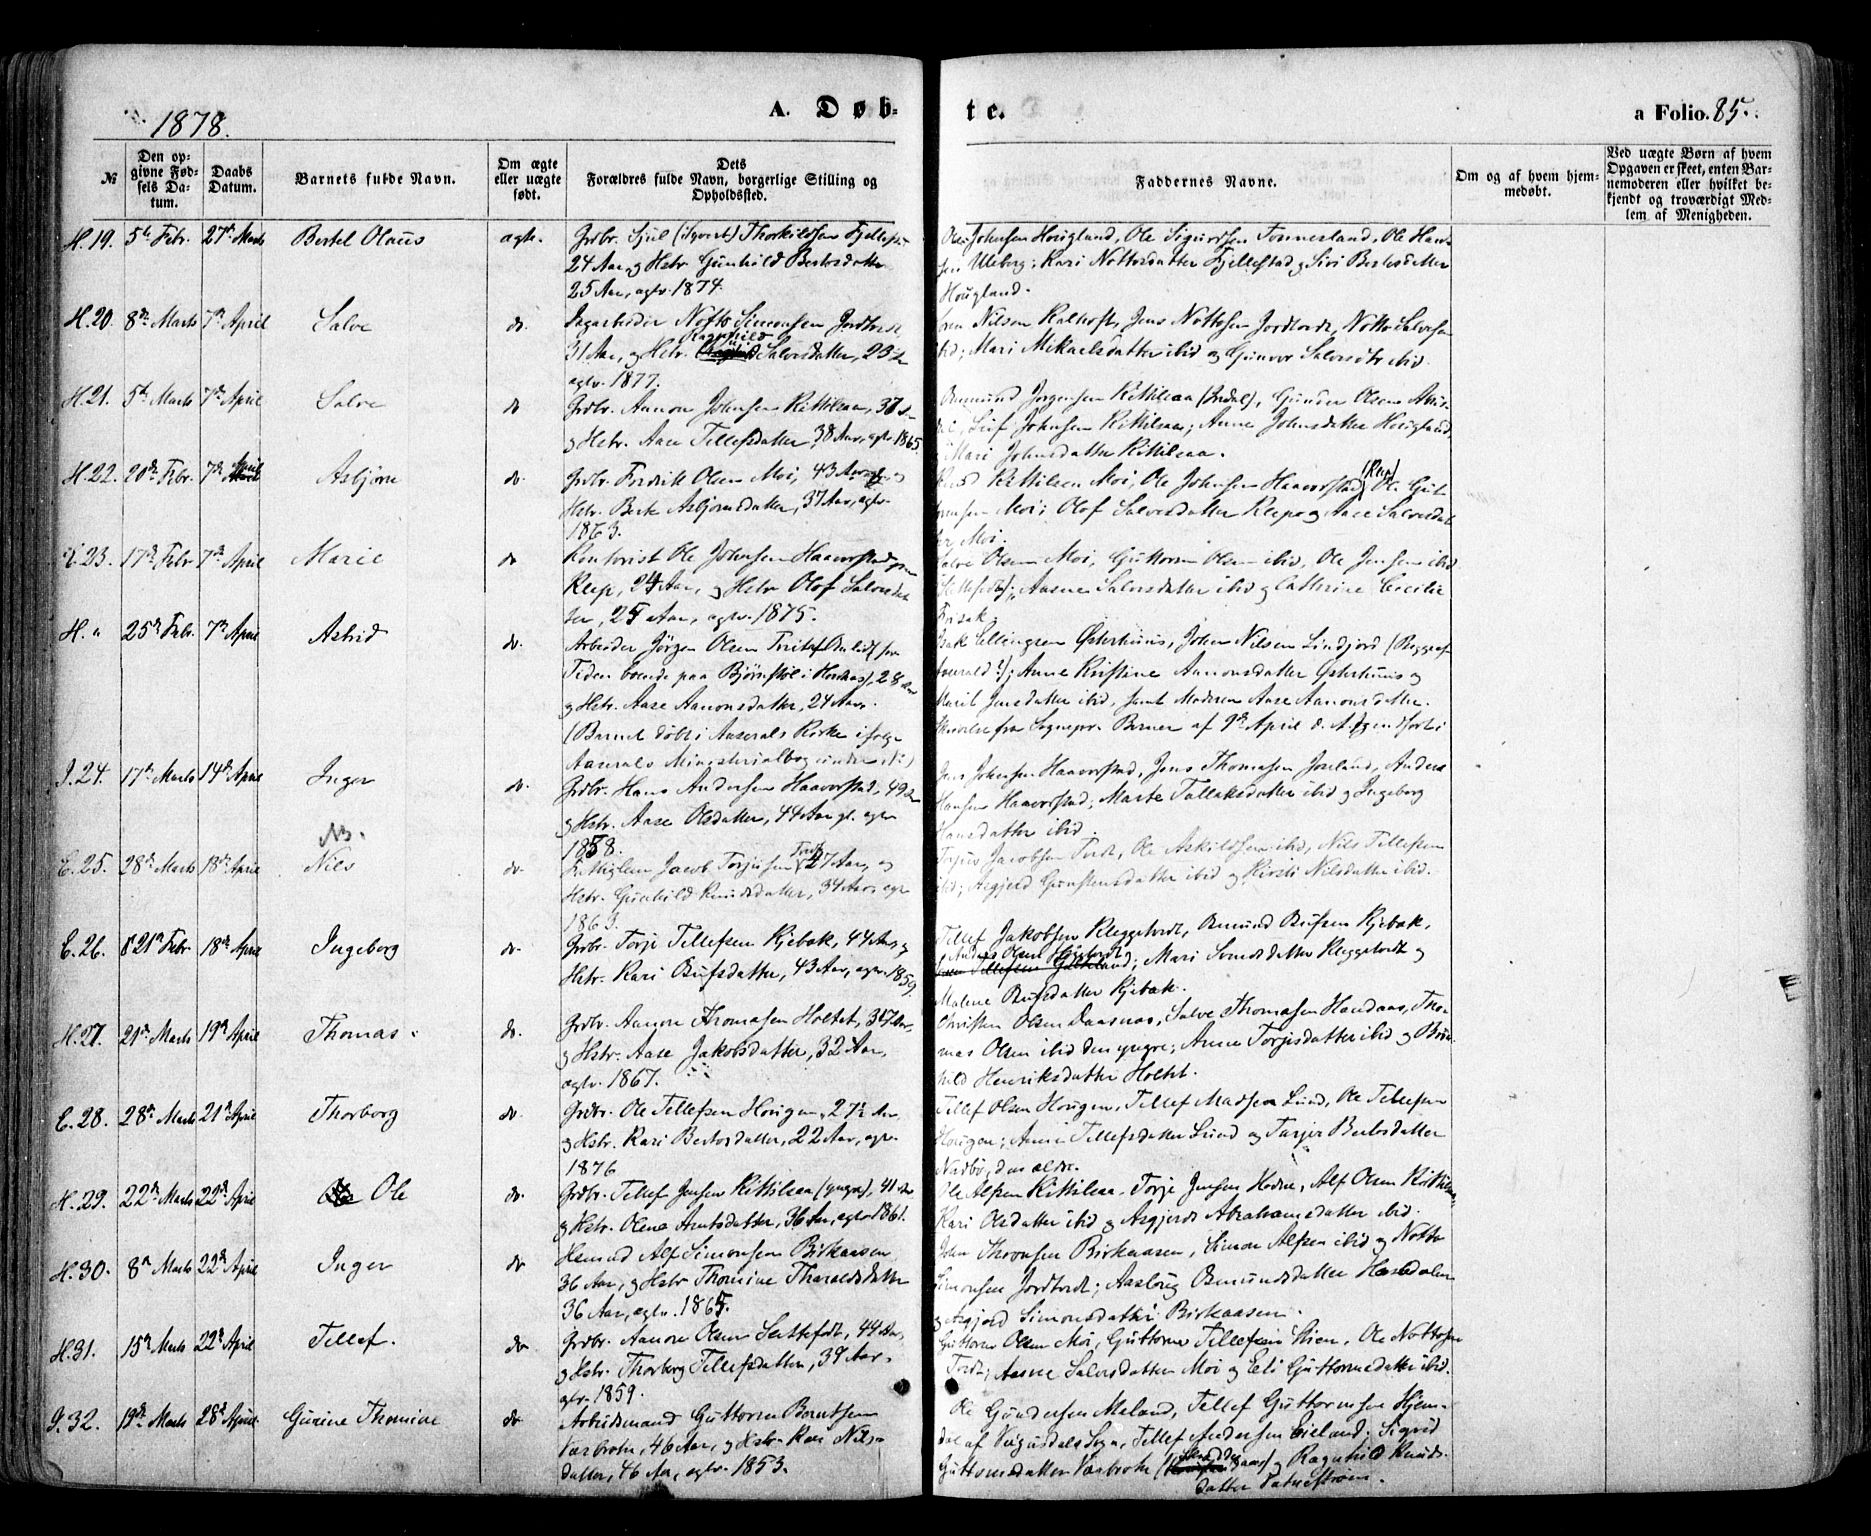 1878.
A. Døb-
te.
a Folio. 85.
№
Den op-
givne Fød-
sels Da-
tum.
Daabs
Datum.
Barnets fulde Navn.
Om ægte
eller uægte
født.
Dets
Forældres fulde Navn, borgerlige Stilling og
Opholdssted.
Faddernes Navne.
Om og af hvem hjem-
medøbt.
Ved uægte Børn af hvem
Opgaven er skeet, enten Bar-
nemoderen eller hvilket be-
kjendt og troværdigt Med-
lem af Menigheden.
H. 19. 5te Febr. 27de Marts Bertel Olaus ægte.
Grdbr. Sjul (Syvert) Thorkildsen Fjellestad
24 Aar, og Hstr. Gunhild Bertosdatter
25 Aar, agtv. 1874.
Ole Johnsen Hougland, Ole Sigurdsen Tonnesland, Ole Han-
sen Uleberg; Kari Nottosdatter Fjellestad og Siri Bertosdatter
Hougland.
H. 20. 8de Marts 7de April Salve do.
Dagarbeider Notto Simonsen Jordtvedt
31 Aar, og Hstr. Ragnhild Salvesdatter, 23 Aar
agtv. 1877.
Nilsen Kalhoft, Jens Nottosen Jordtvedt, Notto Salvesen
ibid; Mari Mikaelsdatter ibid og Gunvor Salvesdtr ibid.
H. 21. 5te Marts 7de April Salve do
Grdbr. Aanon Johnsen Kittilsaa, 37 Aar
og Hstr. Aase Tellefsdatter, 38 Aar, agtv. 1865
Osmund Jørgensen Kittilsaa (Iredal), Gunder Olsen
Leif Johnsen Kittilsaa; Anne Johnsdatter Hougland
Mari Johnsdatter Kittilsaa.
H. 22. 20de Febr. 7de April Asbjørn do.
Grdbr. Fredrik Olsen Moi, 43 Aar, og
Hstr. Berte Asbjørnsdatter, 37 Aar, agtv.
1863.
Knud Kittilsen Moi, Ole Johnsen Haaverstad (Klep), Ole Gut-
tormsen Moi; Olof Salvesdatter Klep og Aase Salvesdat-
ter Moi.
23. 17de Febr 7de April Marie do
Kontorist Ole Johnsen Haaverstad
Klep, 24 Aar, og Hstr Olof Salvesdat-
ter, 25 Aar, agtv. 1875.
Salve Olsen Moi, Guttorm Olsen ibid, Ole Jensen ibid
Aasne Salvesdatter ibid og Cathrine Cecilie
Frisak
H. " 25de Febr. 7de April Astrid do.
Arbeider Jørgen Olsen
Tiden boende paa Bjørnstøl i Hornnes), 28 Aar
og Hstr. Aase Aanonsdatter, 24 Aar,
(Barnet døbt i Aaserals Kirke ifølge
Aaserals Ministerialbog
Ellingsen Østerhuus, Johan Nilsen Lindjord
Anne Kristine Aanonsdatter Østerhuus og
Marit Jensdatter ibid, samt Moderen Aase Aanonsdatter.
Skrivelse fra Sognepr. Berner af 9de April d. A.
J. 24. 17de Marts 14de April Inger do.
Grdbr. Hans Andersen Haaverstad, 49 Aar
og Hstr. Aase Olsdatter, 44 Aar gl. agtv
1858.
Jens Johnsen Haaverstad, Jens Thomasen Joreland, Anders
Hansen Haaverstad; Marte Tallaksdatter ibid og Ingeborg
Hansdatter ibid.
NB.
E. 25. 28de Marts 18de April Nils do.
Jacob Torjusen Tvedt, 27 Aar, og
Hstr. Gunhild Knudsdatter, 34 Aar, agtv
1863.
Torjus Jacobsen Tvedt, Ole Askildsen ibid, Nils Tellefsen
ibid; Asgjerd Gunstensdatter ibid og Kirsti Nilsdatter ibid.
E. 26. 21de Febr 18de April Ingeborg do.
Grdbr. Torje Tellefsen Kjebæk, 44 Aar, og
Hstr. Kari Aufsdatter, 43 Aar, agtv. 1859.
Tellef Jakobsen Kleggetvedt, Osmund Aufsen Kjebæk,
Anders Olsen Kleggetvedt; Mari Svendsdatter Kleggetvedt og
Malene Aufsdatter Kjebæk.
H. 27. 21de Marts 19de April Thomas. do.
Grdbr. Aanon Thomasen Holtet, 37 Aar,
og Hstr. Aase Jakobsdatter, 32 Aar,
agtv. 1867.
Christen Olsen Daasnes, Salve Thomasen Handaas, Tho-
mas Olsen ibid den yngre; Anne Torjusdatter ibid og Brün-
hild Henriksdatter Holtet.
E. 28. 28de Marts 21de April Thorborg do
Grdbr. Ole Tellefsen Hougen, 27½ Aar
og Hstr. Kari Bertosdatter, 22 Aar, agtv.
1876
Tellef Olsen Hougen, Tellef Madsen Lund, Ole Tellefsen
Hougen; Anne Tellefsdatter Lund og Torjer Bertosdatter
den ældre.
H. 29. 22de Marts 22de April Ole do.
Grdbr. Tellef Jensen Kittilsaa (yngre), 41 Aar
og Hstr. Olene Arntsdatter, 36 Aar, agtv 1861.
Ole Alfsen Kittilsaa, Torje Jensen Hodne, Alf Olsen Kittilsaa,
Kari Olsdatter ibid og Asgjerd Abrahamsdatter ibid.
H. 30. 8de Marts 22de April Inger do
Husmd Alf Simonsen Birkaasen
36 Aar, og Hstr Thomine Tharaldsdatter
36 Aar, agtv. 1865.
John Thronsen Birkaasen, Simon Alfsen ibid og Notto
Simonsen Jordtvedt; Aaslaug Osmundsdatter Hesedalen
og Asgjerd Simonsdatter Birkaasen.
H. 31. 15de Marts 22de April Tellef. do
Grdbr. Aanon Olsen Sættefødt, 44 Aar,
og Hstr. Thorborg Tellefsdatter, 39 Aar.
agtv. 1859.
Guttorm Olsen Moi, Guttorm Tellefsen Stien, Ole Nottosen
Tvedt; Aasne Salvesdatter Moi og Eli Guttormsdatter ibid.
J. 32. 19de Marts 28de April. Gurine Thomine do
Arbeidsmand Guttorm Berntsen
Vasbrotn, 46 Aar, og Hstr. Kari Nils-
datter, 46 Aar, agtv. 1853.
Ole Gundersen Maland, Tellef Guttormsen Hjem-
dal af Veigusdals Sogn, Tellef Andersen Eieland; Sigrid
Guttormsdatter Vasbrotn og Ragnhild Knuds-
datter Vatnestrøm.